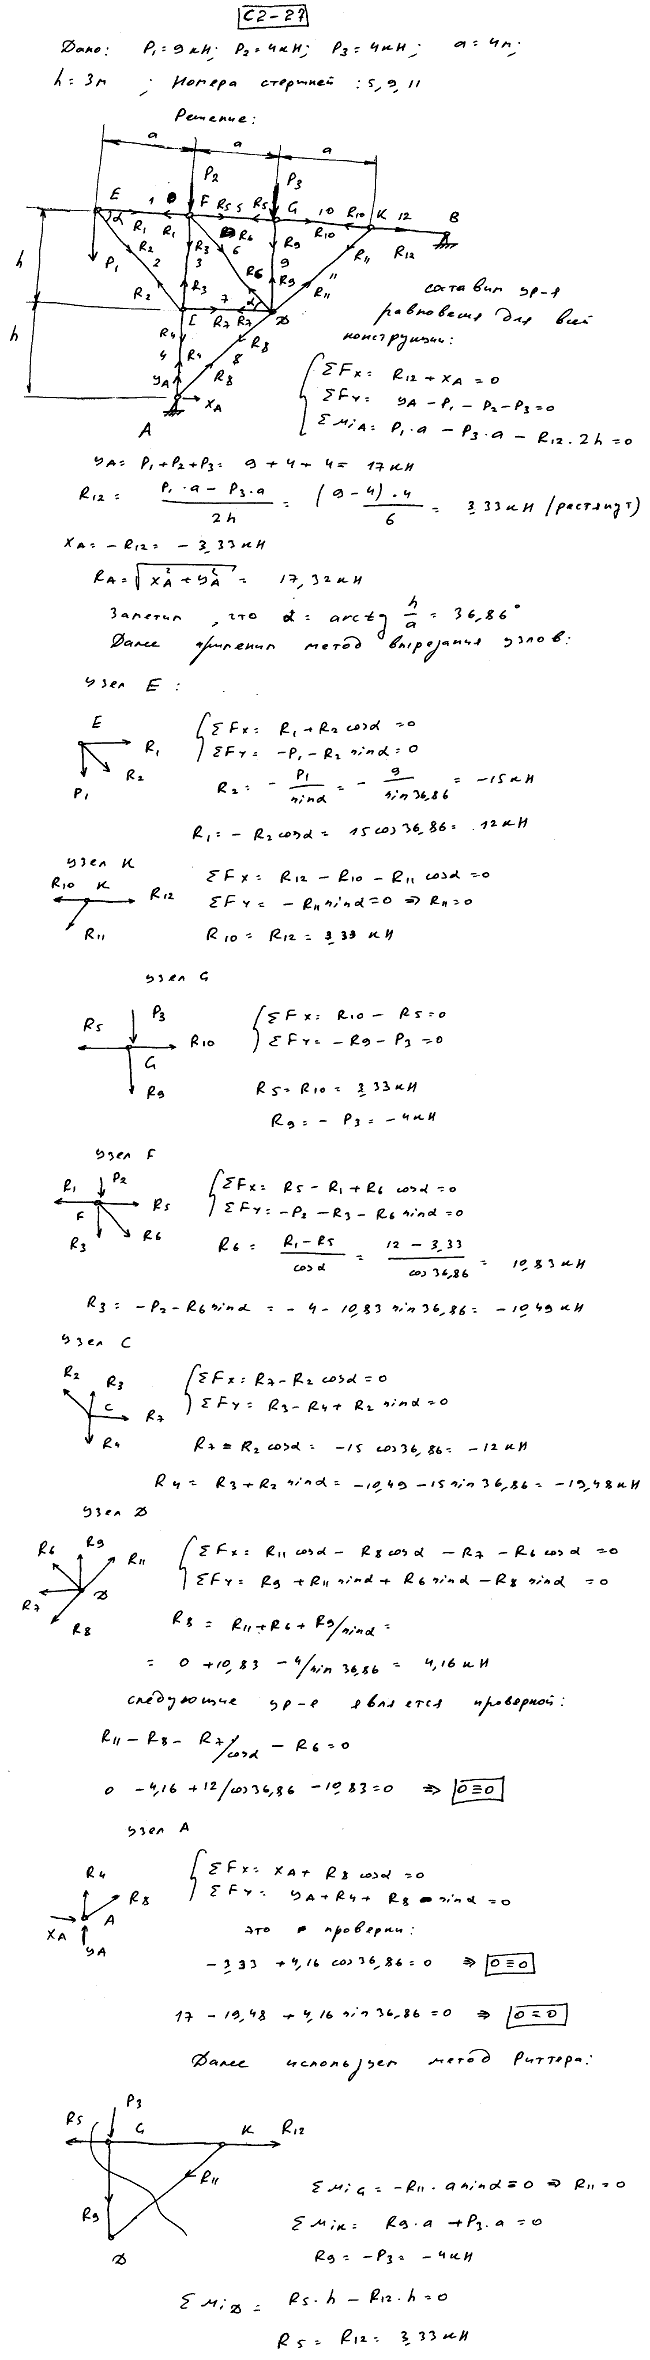 С2-27
Дано: P₁=9кН; P₂=4кН; P₃=4кН; a=4м;
h=3м ; Номера стержней : 5, 9, 11
Решение:
a a a
P₂ P₃
E 1 F R₅ 5 R₅ G 10 R₁₀ K 12 B
α R₁ R₁ R₃ R₆ R₉ R₁₀ R₁₁ R₁₂
h P₁ R₂ 2 3 6 9 11
R₂ R₃ R₆ R₉ R₁₁
C 7 α D
R₄ R₇ R₇ R₈
h 4 R₄ 8
yA R₈
xA
A
составим ур-я
равновесия для всей
конструкции:
ΣFx= R₁₂+xA=0
ΣFy= yA-P₁-P₂-P₃=0
ΣMiA= P₁·a - P₃·a - R₁₂·2h=0
yA= P₁+P₂+P₃= 9+4+4= 17кН
R₁₂= (P₁·a - P₃·a)/2h = (9-4)·4/6 = 3,33кН (растянут)
xA= -R₁₂= -3,33кН
RA=√(xA²+yA²)= 17,32кН
Заметим, что α= arctg h/a = 36,86°
Далее применим метод вырезания узлов:
узел E:
E R₁ R₂ P₁
ΣFx= R₁+R₂cosα=0
ΣFy= -P₁-R₂sinα=0
R₂= - P₁/sinα = - 9/sin36,86 = -15кН
R₁=-R₂cosα= 15cos36,86= 12кН
узел K
R₁₀ K R₁₂
R₁₁
ΣFx= R₁₂-R₁₀-R₁₁cosα=0
ΣFy= -R₁₁sinα=0 ⇒ R₁₁=0
R₁₀=R₁₂= 3,33 кН
узел G
P₃ R₅ R₁₀ G R₉
ΣFx= R₁₀-R₅=0
ΣFy= -R₉-P₃=0
R₅=R₁₀= 3,33кН
R₉= -P₃= -4кН
узел F
R₁ P₂ R₅ F R₃ R₆
ΣFx= R₅-R₁+R₆cosα=0
ΣFy= -P₂-R₃-R₆sinα=0
R₆= (R₁-R₅)/cosα = (12-3,33)/cos36,86 = 10,83кН
R₃= -P₂-R₆sinα = -4-10,83sin36,86= -10,49кН
узел C
R₂ R₃ C R₇ R₄
ΣFx= R₇-R₂cosα=0
ΣFy= R₃-R₄+R₂sinα=0
R₇=R₂cosα= -15cos36,86= -12кН
R₄= R₃+R₂sinα= -10,49-15sin36,86= -19,48кН
узел D
R₆ R₉ R₁₁ R₇ D R₈
ΣFx= R₁₁cosα-R₈cosα-R₇-R₆cosα=0
ΣFy= R₉+R₁₁sinα+R₆sinα-R₈sinα=0
R₈= R₁₁+R₆+R₉/sinα=
= 0+10,83-4/sin36,86= 4,16кН
следующие ур-е является проверкой:
R₁₁-R₈-R₇/cosα-R₆=0
0 -4,16+12/cos36,86-10,83=0 ⇒ 0≡0
узел A
R₄ R₈ A xA yA
ΣFx= xA+R₈cosα=0
ΣFy= yA+R₄+R₈sinα=0
это проверки:
-3,33+4,16cos36,86=0 ⇒ 0≡0
17-19,48+4,16sin36,86=0 ⇒ 0≡0
Далее использует метод Риттера:
R₅ P₃ G K R₁₂
R₁₁
R₉
D
ΣMiG= -R₁₁·asinα=0 ⇒ R₁₁=0
ΣMiK= R₉·a+P₃·a=0
R₉=-P₃= -4кН
ΣMiD= R₅·h-R₁₂·h=0
R₅=R₁₂= 3,33кН